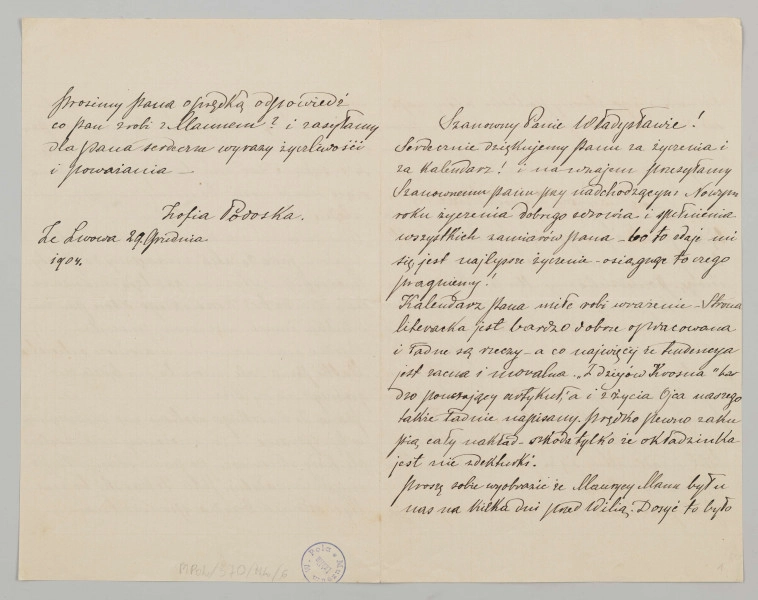 Szanowny Panie Władysławie!
Serdecznie dziękujemy Panu za życzenia i
za Kalendarz! i nawzajem przesyłamy
Szanownemu Panu przy nadchodzącym Nowym
roku życzenia dobrego zdrowia i spełnienia
wszystkich zamiarów Pana – bo to zdaje mi
się jest najlepsze życzenie – osiągnąć to czego
pragniemy!
Kalendarz Pana miłe robi wrażenie – Strona
literacka jest bardzo dobrze opracowana
i ładne są rzeczy – a co najwięcej że tendencya
jest zacna i moralna. „Z dziejów Krosna" bar
dzo pouczający artykuł, a i z życia Ojca naszego
także ładnie napisany. Prędko pewno zaku
pią cały nakład – szkoda tylko że okładzinka
jest nie z
Proszę sobie wyobrazić że Maurycy Mann był u
nas na kilka dni przed Wilią. Dosyć to było
Prosimy Pana o prędką odpowiedź
co Pan zrobi z Mannem? i zasyłamy
dla Pana serdeczne wyrazy życzliwości
i poważania –
Zofia Podoska.
Ze Lwowa 29. Grudnia
1904.
MPol/570/44/6